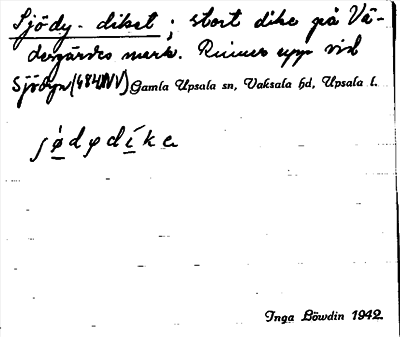 Sjödy-diket; stort dike på Vä-
dergärdes mark. Rinner upp vid
Sjödyn (484NV) Gamla Upsala sn, Vaksala hd, Upsala l.
Inga Löwdin 1942.